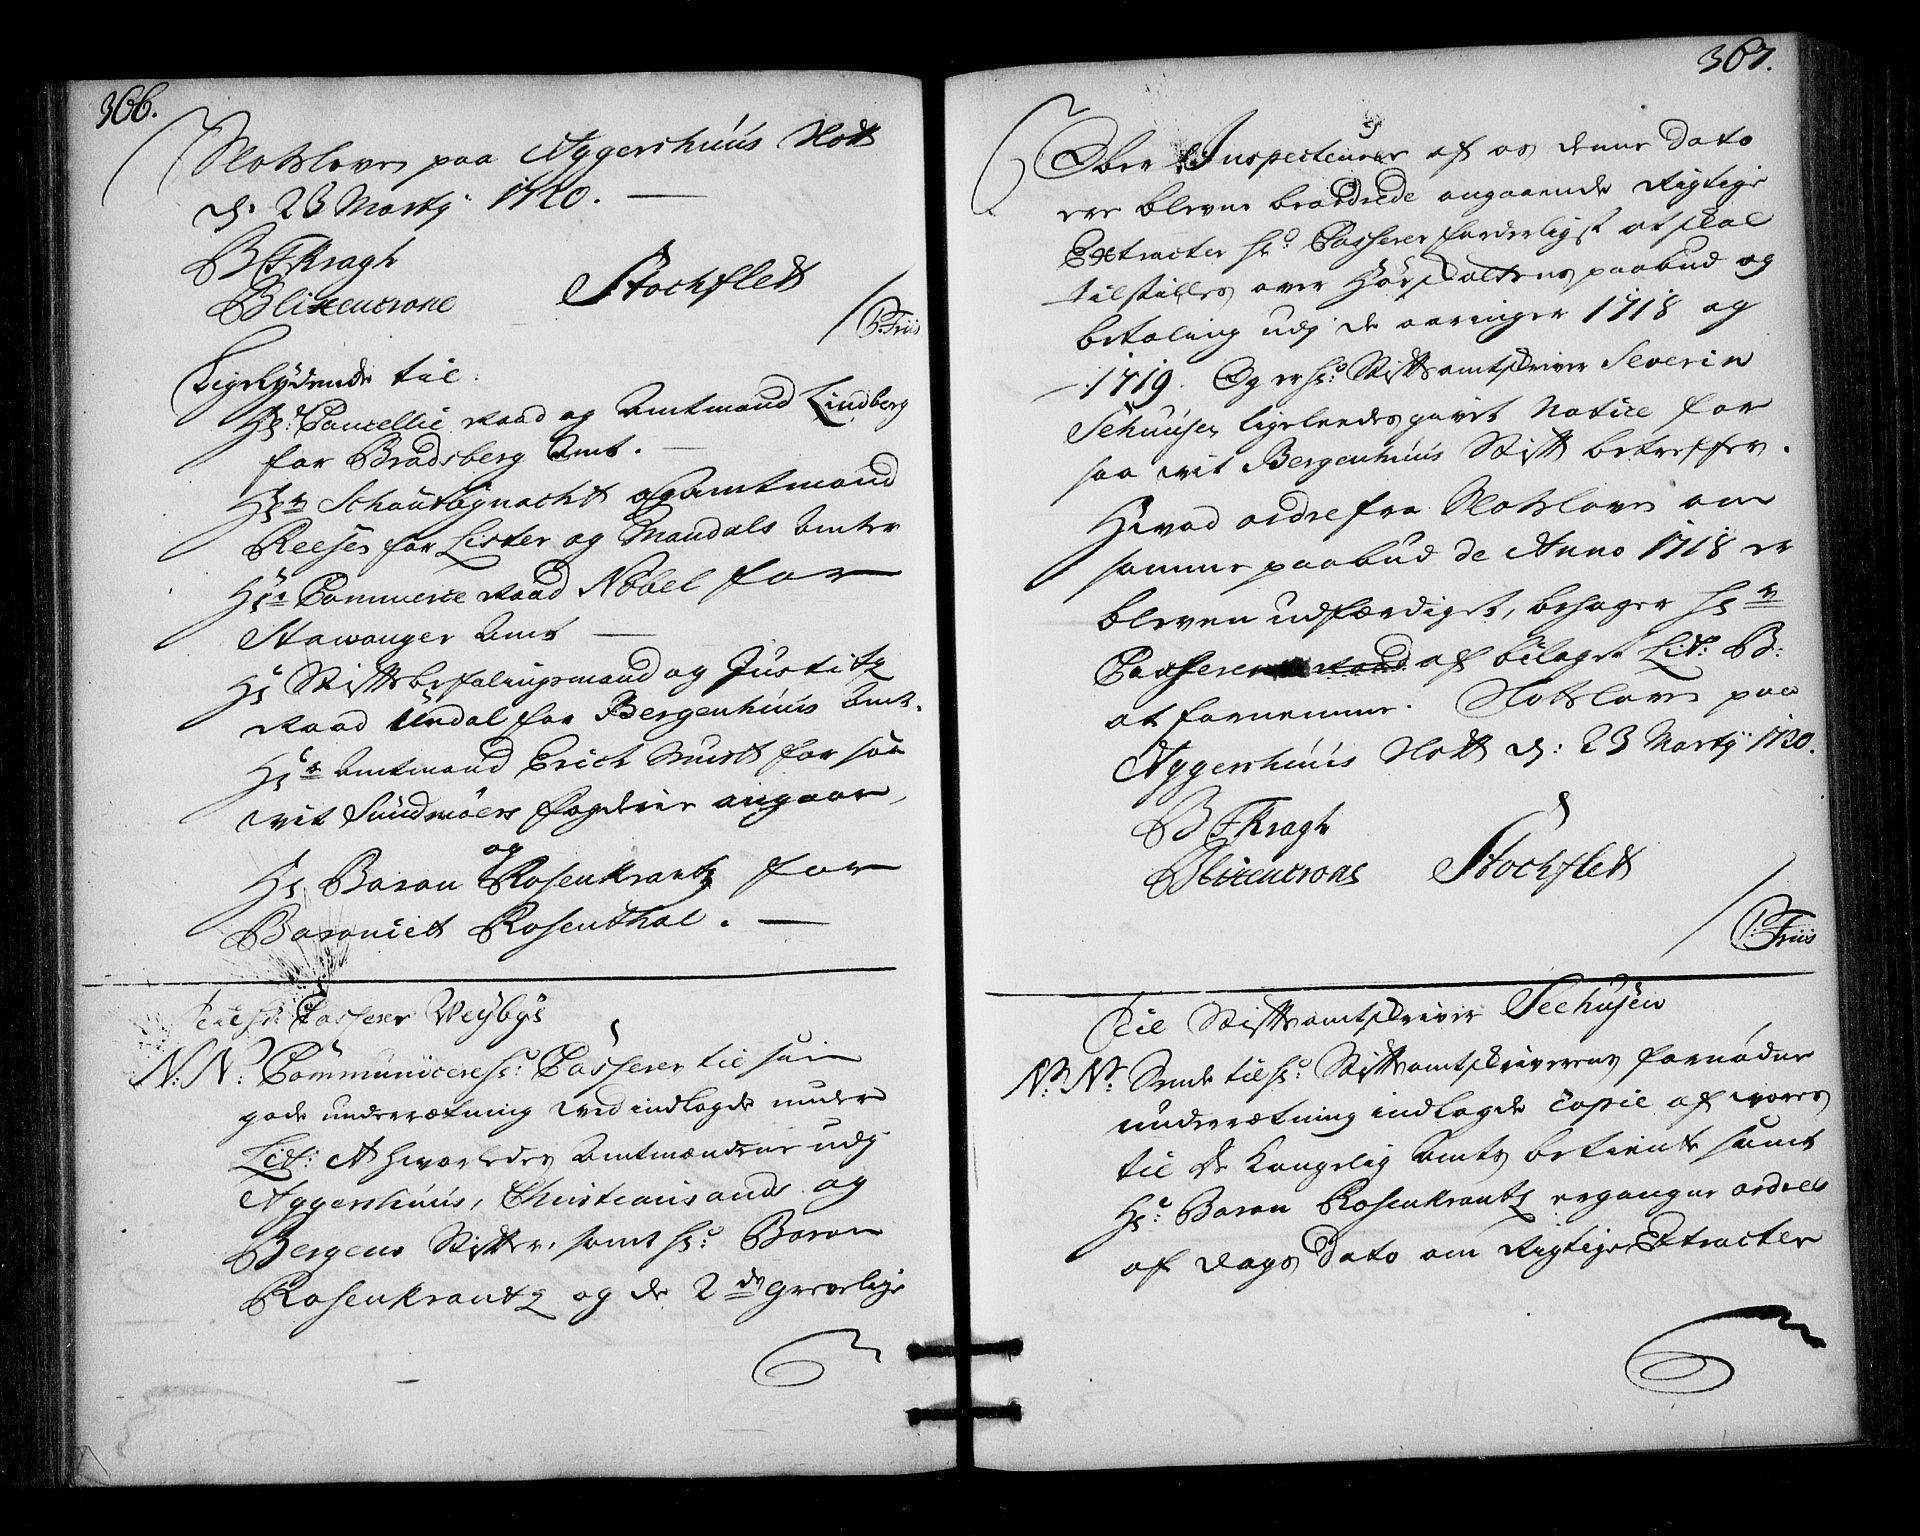 366.
Slotsloven paa Aggershuus Slott
d: 23 Martij 1720. —
B F Kragh
Blixencrone Stochflett
/ P: Friis
Ligelydende til.
Hr: Cancellie Raad og Amtmand Lindberg
for Bradsberg Amt. —
Hr Schoutbynacht og Amtmand
Reesen for Lister og Mandals Amter
Hr Commerce Raad Nobel for
Stawanger Amt —
Hr Stiftsbefalingsmand og Justitz
Raad Undal for Bergenhuus Amt.
Hr Amtmand Erich Must for saa
vit Sundmöers fogderie angaar,
og
Hr Baron Rosenkrantz for
Baroniet Rosenthal. —
Til Hr: Casserer Weybye
N: N: Communicere Hr: Casserer til sin
gode underrætning ved indlagde under
Lit: A hvorledes Amtmændene udj
Aggershuus, Christiansands og
Bergens Stifter, samt Hr: Baron
Rosenkrantz og de 2de grevelige
367.
Ober Inspecteurer af os denne Dato
ere blevne beordrede angaaende Rigtige
Extracter Hr: Casserer forderligst at skal
tilstilles over Hör Skattens paabud og
betaling udj de aaringer 1718 og
1719. Og er Hr: Stiftsamtskriver Severin
Sehuusen ligeleedes givet Notice for
saa vit Bergenhuus Stift betreffer.
Hvad ordre fra Slotsloven om
samme paabud de Anno 1718 er
bleven udfærdiget, behager Hr
Casserer af bilagde Lit: B:
at fornemme. Slotsloven paa
Aggershuus Slott d: 23 Martij 1720.
B F Kragh
Blixencrone Stochflett
/ P: Friis
Til Stiftsamtskriver Seehusen
N: N: Sende til Hr: Stiftsamtskriverens fornödne
underrætning indlagde Copie af vores
til de Kongelig Amts betiente samt
Hr: Baron Rosenkrantz ergangne ordres
af Dags Dato om Rigtige Extracter